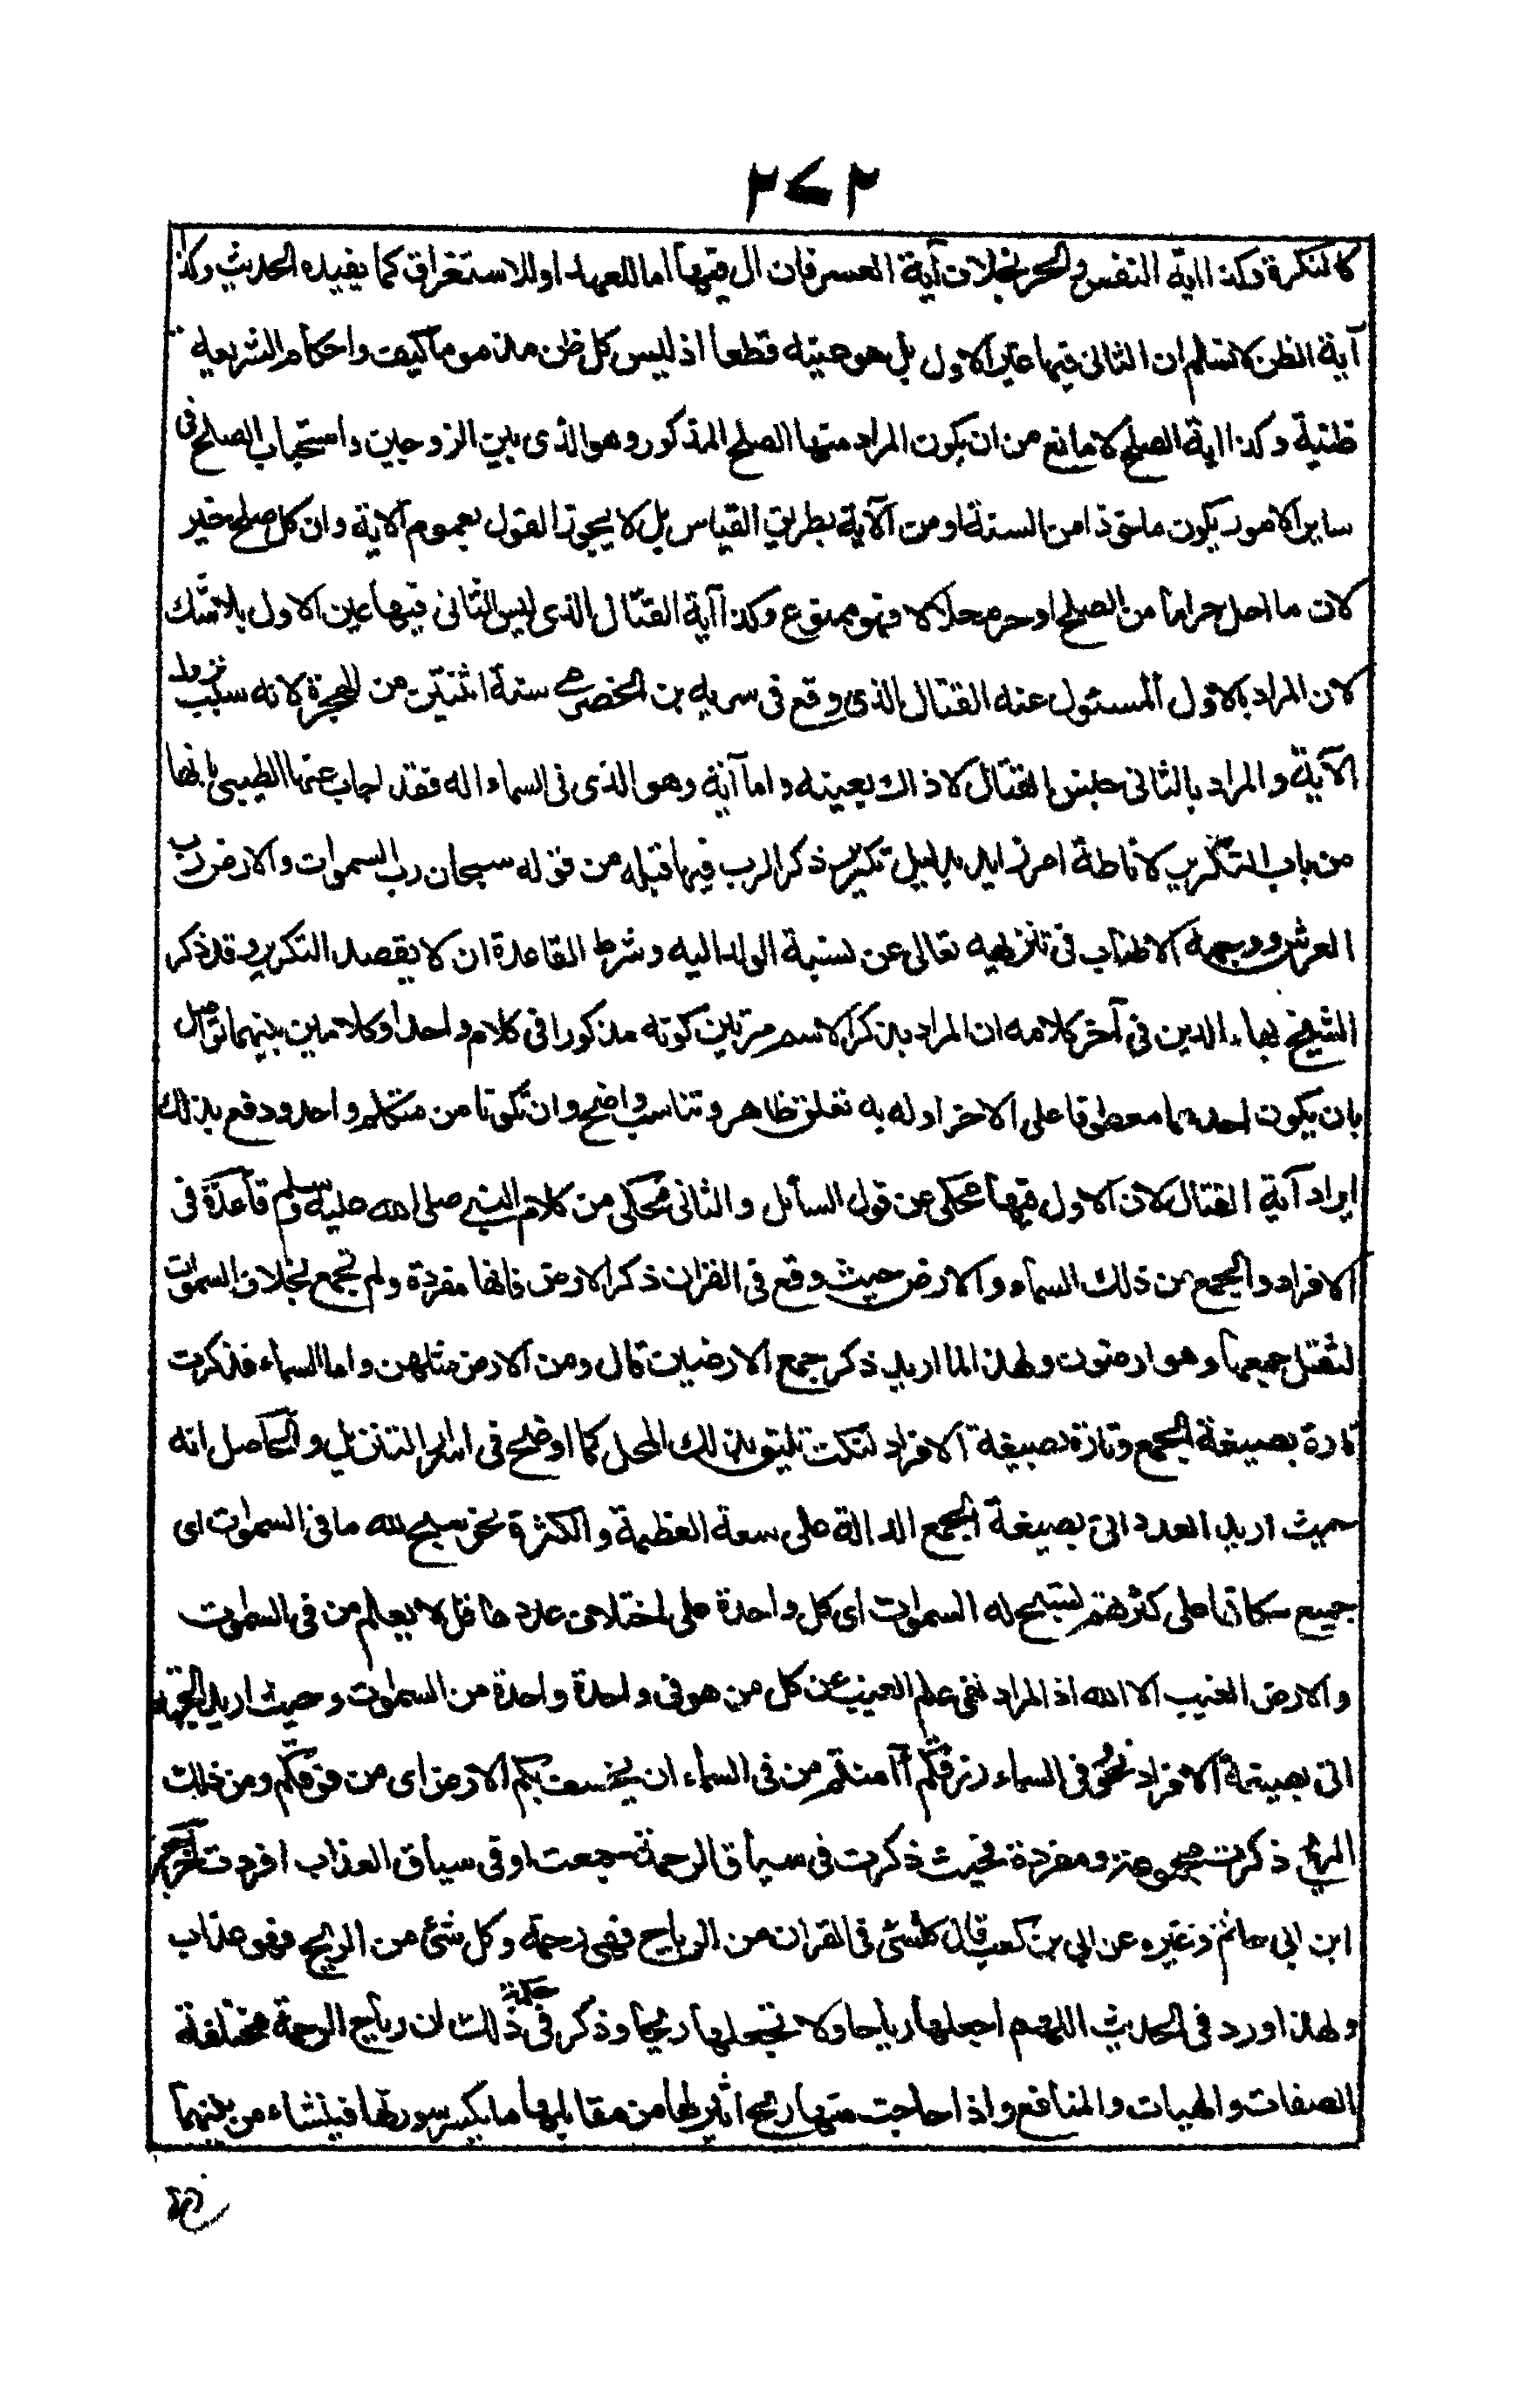 ٢٧٢
كالنكرة وكذا اية النفس والحر بخلاف آية العسر فان ال فيها اما للعهد او للاستغراق كما يفيده الحديث وكذا
آية الظن لا نسلم ان الثانى فيها غير الاول بل هو عينه قطعا اذ ليس كل ظن مذموما كيف واحكام الشريعه
ظنية وكذا اية الصلح لا مانع من ان يكون المراد منها الصلح المذكور وهو الذى بين الزوجين واستحباب الصلح فى
ساير الامور يكون ماخوذا من السنة او من الآية بطريق القياس بل لا يجوز القول بعموم الاية وان كل صلح خير
لان ما احل حراما من الصلح او حرم حلالا فهو ممنوع وكذا آية القتال الذى ليس الثانى فيها عين الاول بلا شك
لان المراد بالاول المسئول عنه القتال الذى وقع فى سريه بن الحضرمى سنة اثنتين من الهجرة لانه سبب نزول
الآية والمراد بالثانى جنس القتال لا ذاك بعينه واما آية وهو الذى فى السماء اله فقد اجاب عنها الطيبى بانها
من باب التكرير لافاطة امر زايد بدليل تكرير ذكر الرب فيما قبله من قوله سبحان رب السموات والارض رب
العرش ووجهه الاطناب فى تنزيهه تعالى عن نسبة الولد اليه وشرط القاعدة ان لا يقصد التكرير وقد ذكر
الشيخ بهاء الدين فى آخر كلامه ان المراد بذكر الاسم مرتين كونه مذكورا فى كلام واحد او كلامين بينهما تواصل
بان يكون احدهما معطوفا على الاخر او له به تعلق ظاهر وتناسب واضح وان تكونا من متكلم واحد ودفع بذلك
ايراد آية القتال لان الاول فيها محكى عن قول السائل والثانى محكى من كلام النبى صلى الله عليه وسلم قاعدة فى
الافراد والجمع من ذلك السماء والارض حيث وقع فى القران ذكر الارض فانها مفردة ولم تجمع بخلاف السموات
لثقل جمعها وهو ارضون ولهذا لما اريد ذكر جمع الارضين قال ومن الارض مثلهن واما السماء فذكرت
تارة بصيغة الجمع وتارة بصيغة الافراد لنكت تليق بذلك المحل كما اوضح فى اسرار التنزيل والحاصل انه
حيث اريد العدد اتى بصيغة الجمع الدالة على سعة العظمة والكثرة نحو سبح لله ما فى السموات اى
جميع سكانها على كثرتهم تسبح له السموات اى كل واحدة على اختلاف عددها قل لا يعلم من فى السموات
والارض الغيب الا الله اذ المراد نفى علم الغيب عن كل من هو فى واحدة واحدة من السموات وحيث اريد الجهة
اتى بصيغة الافراد نحو فى السماء رزقكم أأمنتم من فى السماء ان يخسف بكم الارض اى من فوقكم ومن ذلك
الريح ذكرت مجموعة ومفردة فحيث ذكرت فى سياق الرحمة جمعت او فى سياق العذاب افردت اخرج
ابن ابى حاتم وغيره عن ابى بن كعب قال كل شئ فى القران من الرياح فهى رحمة وكل شئ من الريح فهو عذاب
ولهذا ورد فى الحديث اللهم اجعلها رياحا ولا تجعلها ريحا وذكر فى حكمة ذلك ان رياح الرحمة مختلفة
الصفات والهيات والمنافع واذا هاجت منها ريح اثير لها من مقابلها ما يكسر سورتها فينشاء من بينهما